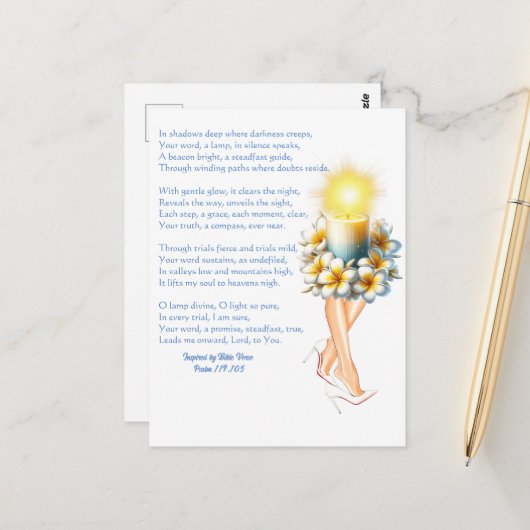 zle
In shadows deep where darkness creeps,
Your word, a lamp, in silence speaks,
A beacon bright, a steadfast guide,
Through winding paths where doubts reside.
With gentle glow, it clears the night,
Reveals the way, unveils the sight,
Each step, a grace, each moment, clear,
Your truth, a compass, ever near.
Through trials fierce and trials mild,
Your word sustains, as undefiled,
In valleys low and mountains high,
It lifts my soul to heavens nigh.
O lamp divine, O light so pure,
In every trial, I am sure,
Your word, a promise, steadfast, true,
Leads me onward, Lord, to You.
Inspired by Bible Verse
Psalm 119:105